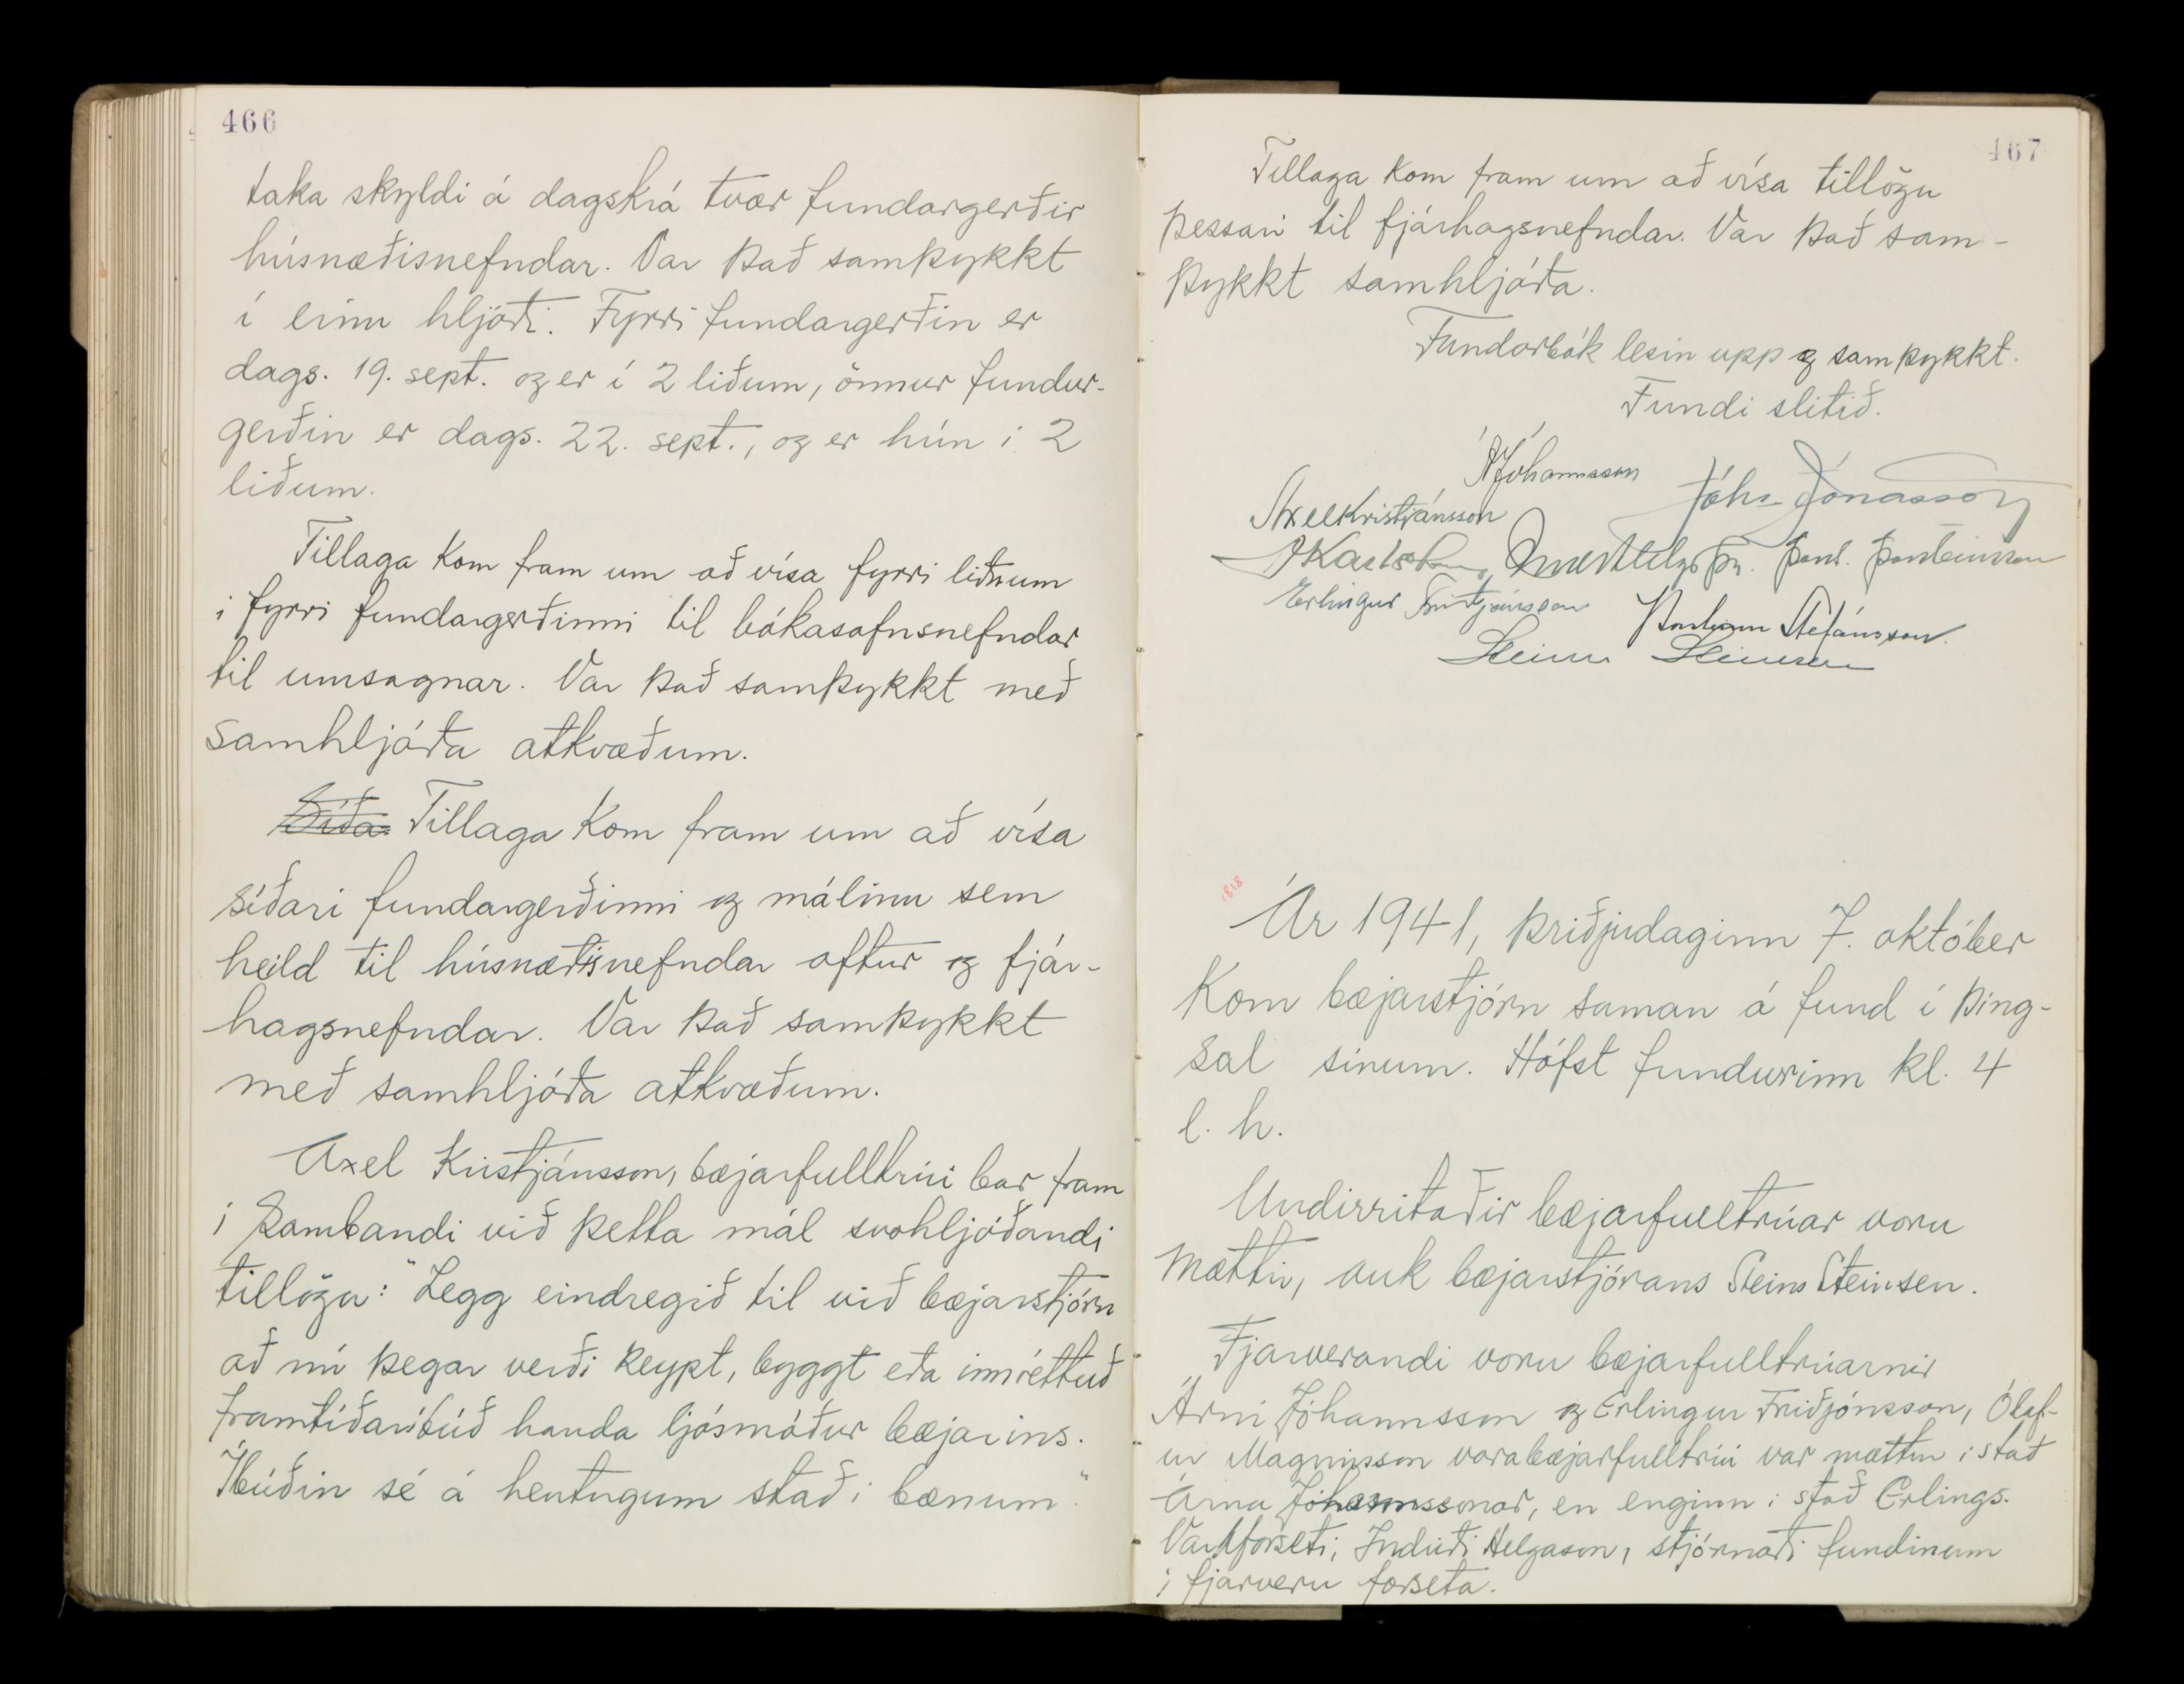 466
taka skyldi á dagskrá tvær fundargerðir
húsnæðisnefndar. Var það samþykkt
í einu hljóði. Fyrri fundargerðin er
dags. 19. sept. og er í 2 liðum, önnur fundar-
gerðin er dags. 22. sept., og er hún í 2
liðum.
Tillaga kom fram um að vísa fyrri liðnum
í fyrri fundargerðinni til bókasafnsnefndar
til umsagnar. Var það samþykkt með
samhljóða atkvæðum.
Síða Tillaga kom fram um að vísa
síðari fundargerðinni og málinu sem
heild til húsnæðisnefndar aftur og fjár-
hagsnefndar. Var það samþykkt
með samhljóða atkvæðum.
Axel Kristjánsson, bæjarfulltrúi bar fram
í sambandi við þetta mál svohljóðandi
tillögu: "Legg eindregið til við bæjarstjórn
að nú þegar verði keypt, byggt eða innréttuð
framtíðaríbúð handa ljósmóður bæjarins.
Íbúðin sé á hentugum stað í bænum."
467
Tillaga kom fram um að vísa tillögu
þessari til fjárhagsnefndar. Var það sam-
þykkt samhljóða.
Fundarbók lesin upp og samþykkt.
Fundi slitið.
ÁJóhannsson Jóh. Jónasson
Axel Kristjánsson
Þorst. Þorsteinsson
Erlingur Friðjónsson Þorsteinn Stefánsson.
Steinn Steinsen
1818
Ár 1941, þriðjudaginn 7. október
kom bæjarstjórn saman á fund í þing-
sal sínum. Hófst fundurinn kl. 4
e. h.
Undirritaðir bæjarfulltrúar voru
mættir, auk bæjarstjórans Steins Steinsen.
Fjarverandi voru bæjarfulltrúarnir
Árni Jóhannsson og Erlingur Friðjónsson, Ólaf-
ur Magnússon varabæjarfulltrúi var mættur í stað
Árna Jóhannssonar, en enginn í stað Erlings.
Varaforseti, Indriði Helgason, stjórnaði fundinum
í fjarveru forseta.